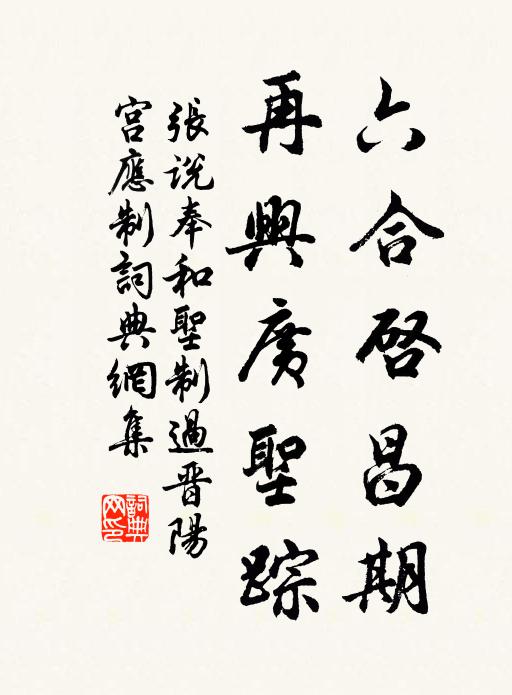 六合啓昌期
再興廣聖踪
張説奉和聖制過晋陽
宮應制詞典網集
詞典网印